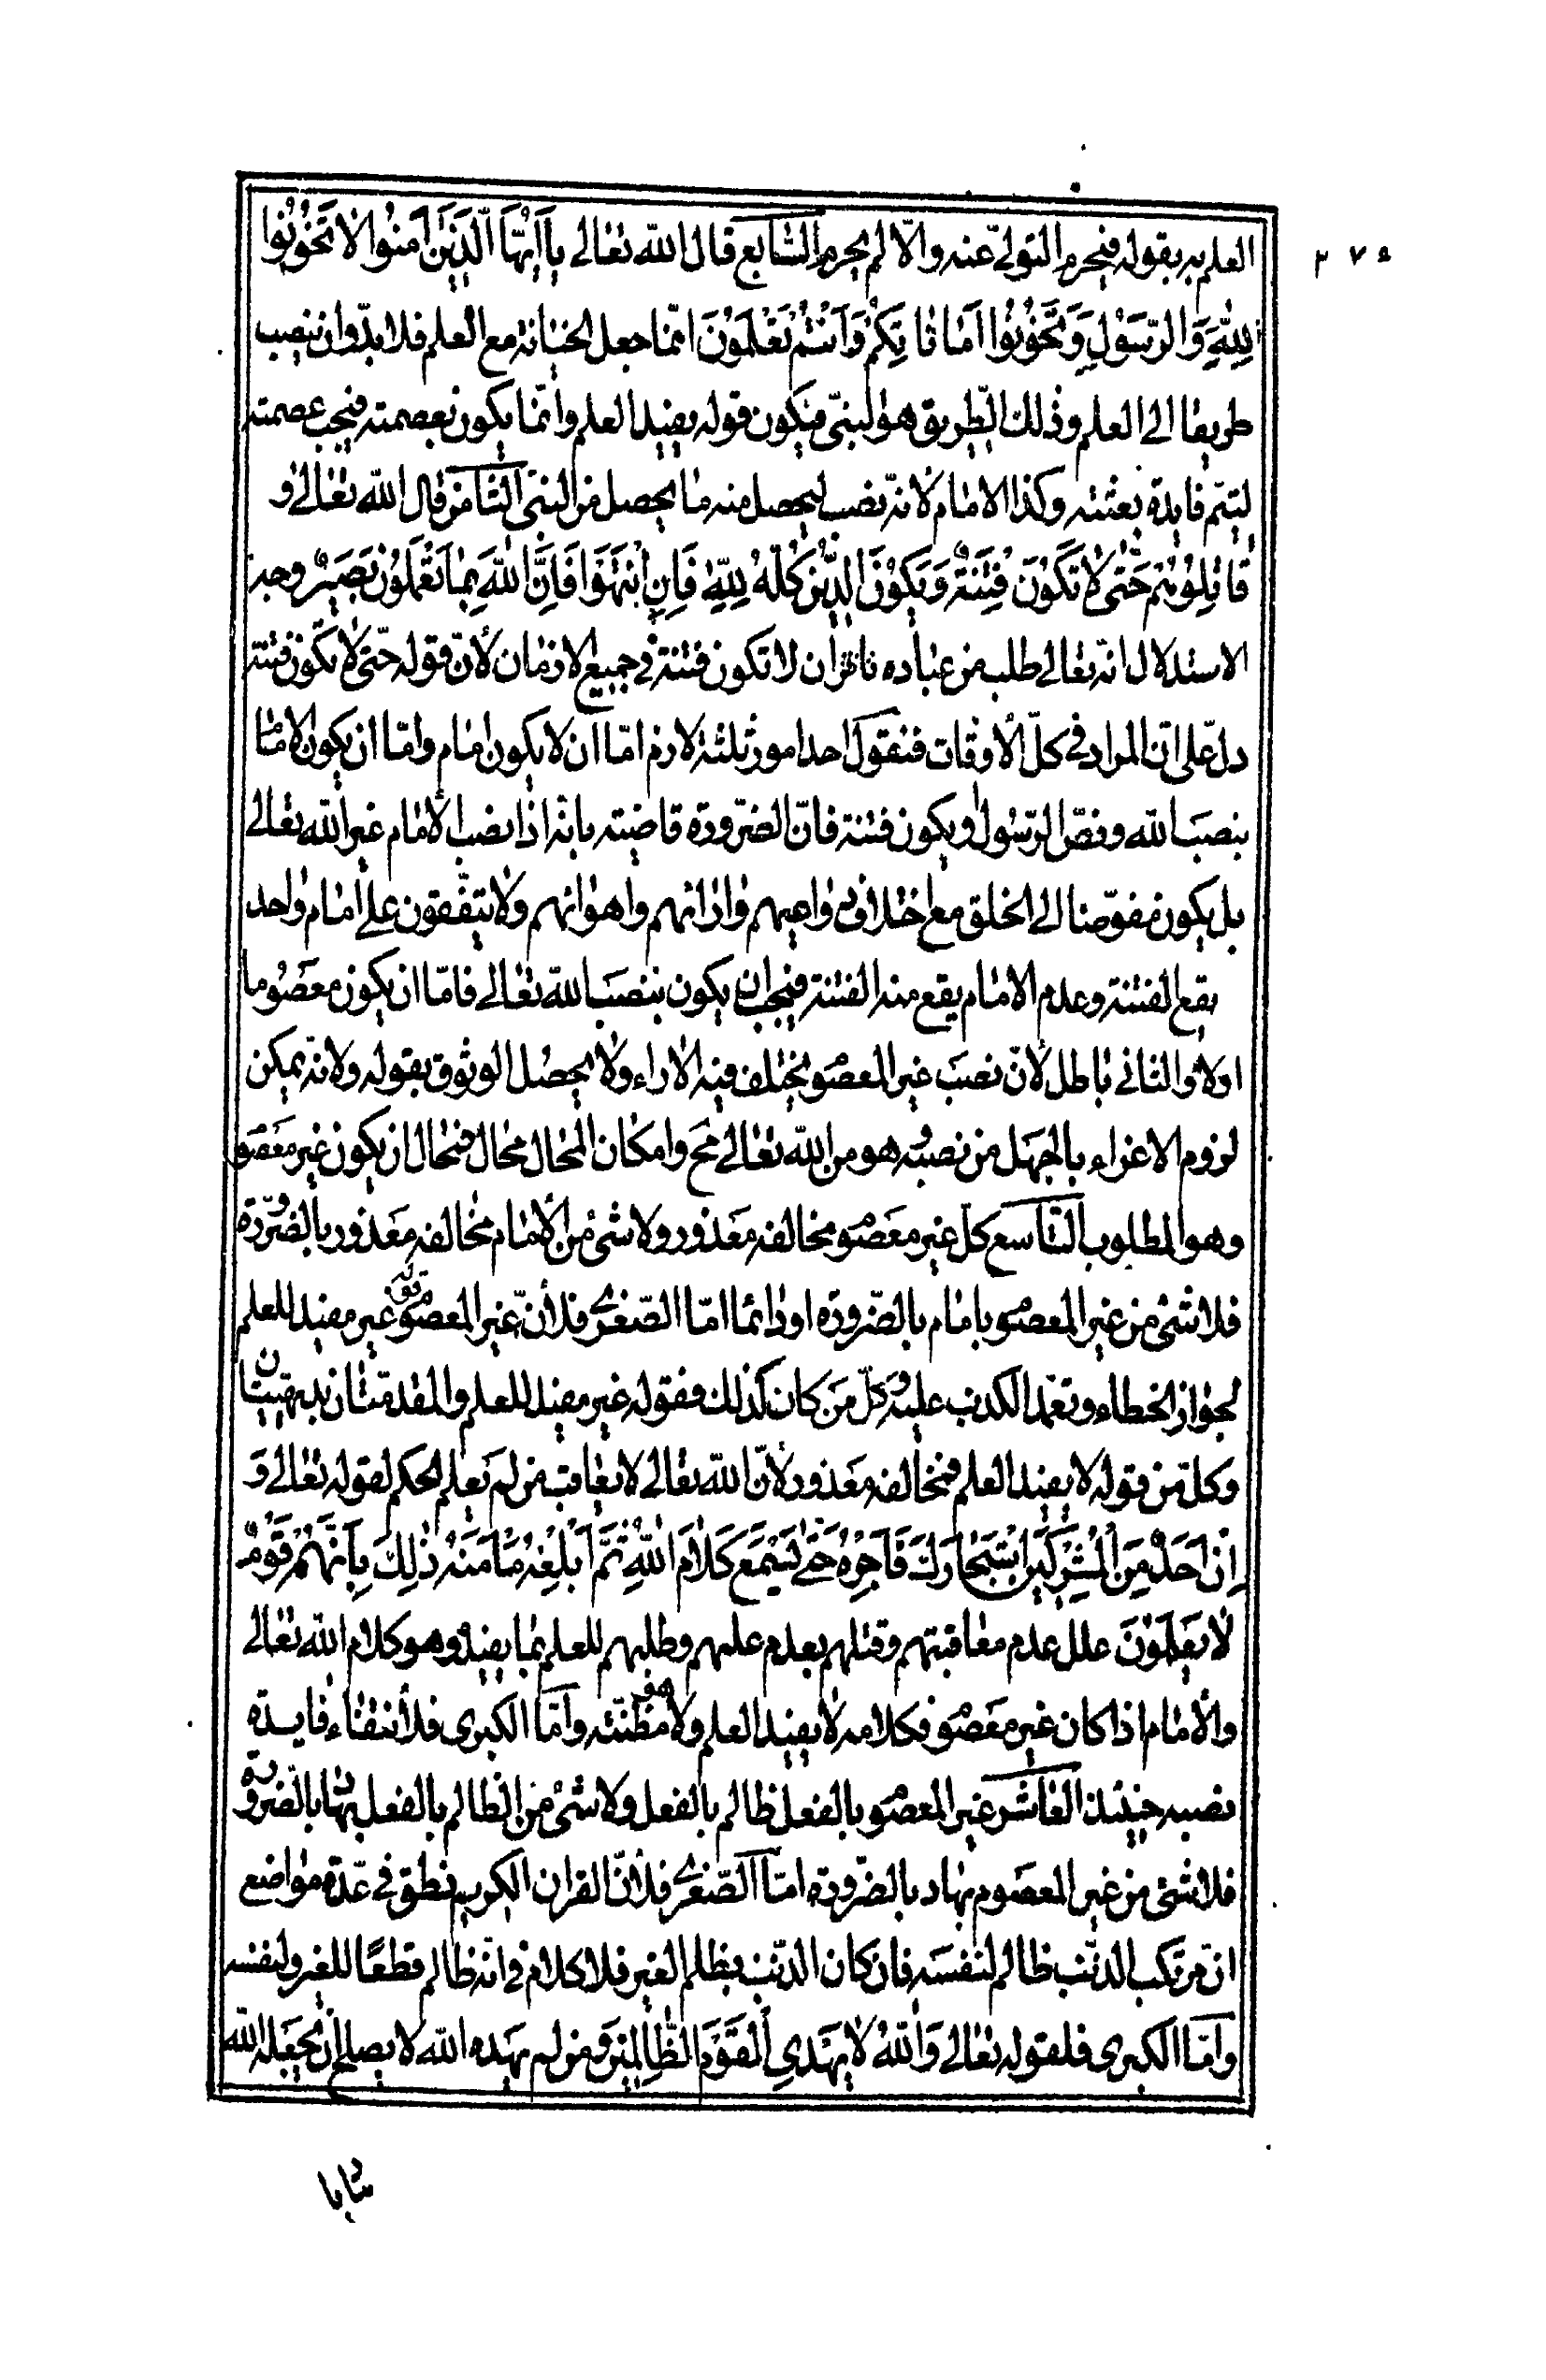 ٢٧٥
العلم به بقوله فيحرم التولّى عنه والّا لم يحرم السّابع قال الله تعالى يا أَيُّهَا الَّذِينَ آمَنُوا لا تَخُونُوا
اللهَ وَالرَّسُولَ وَتَخُونُوا أَمَانَاتِكُمْ وَأَنْتُمْ تَعْلَمُونَ انّما جعل الخيانة مع العلم فلا بدّ وان ينصب
طريقا الى العلم وذلك الطريق هو النبىّ فيكون قوله يفيد العلم وانّما يكون بعصمته فيجب عصمته
ليتمّ فايدة بعثته وكذا الامام لانّه نصب ليحصل منه ما يحصل من النبى الثّامن قال الله تعالى و
قَاتِلُوهُمْ حَتّى لا تَكُونَ فِتْنَةٌ وَيَكُونَ الدِّينُ كُلُّهُ لِلّهِ فَإِنِ انْتَهَوْا فَإِنَّ اللهَ بِما يَعْمَلُونَ بَصِيرٌ وجه
الاستدلال انّه تعالى طلب من عباده ان لا تكون فتنة فى جميع الازمان لأنّ قوله حتّى لا تكون فتنة
دلّ على انّ المراد فى كلّ الأوقات فنقول احد امور ثلثة لازم امّا ان لا يكون امام وامّا ان يكون الامام لا
بنصب الله ونصّ الرّسول ويكون فتنة فانّ الضّرورة قاضية بانّه اذا نصب الامام غير الله تعالى
بل يكون مفوّضا الى الخلق مع اختلاف دواعيهم وارائهم واهوائهم ولا يتفّقون على امام واحد
يقع الفتنة وعدم الامام يقع منه الفتنة فيجب ان يكون بنصب الله تعالى فامّا ان يكون معصوما
اولا والثانى باطل لأنّ نصب غير المعصو يختلف فيه الاراء ولا يحصل الوثوق بقوله ولانّه يمكن
لزوم الاغراء بالجهل من نصبه هو من الله تعالى مح وامكان المحال محال فمحال ان يكون غير معصو
وهو المطلوب التّاسع كل غير معصو مخالفه معذور ولا شئ من الإمام مخالفه معذور بالضّرورة
فلا شئ من غير المعصو بامام بالضّرورة او دائما امّا الصّغرى فلأنّ غير المعصو قوله غير مفيد للعلم
لجواز الخطاء وتعمّد الكذب عليه وكلّ من كان كذلك فقوله غير مفيد للعلم والمقدمتان بديهيتان
وكلّ من قوله لا يفيد العلم فمخالفه معذور لأنّ الله تعالى لا يعاقب من لم يعلم الحكم لقوله تعالى وَ
إِنْ أَحَدٌ مِنَ الْمُشْرِكِينَ اسْتَجارَكَ فَأَجِرْهُ حَتّى يَسْمَعَ كَلامَ اللهِ ثُمَّ أَبْلِغْهُ مَأْمَنَهُ ذلِكَ بِأَنَّهُمْ قَوْمٌ
لا يَعْلَمُونَ علل عدم معاقبتهم وقتلهم بعدم علمهم وطلبهم للعلم بما يفيده وهو كلام الله تعالى
والأمام اذا كان غير معصو فكلامه لا يفيد العلم ولا هو مظنّته وامّا الكبرى فلأنتفاء فايدة
نصبه حينئذ العاشر غير المعصو بالفعل ظالم بالفعل ولا شئ من الظالم بالفعل بهاد بالضّرورة
فلا شئ من غير المعصوم بهاد بالضّرورة امّا الصّغرى فلأنّ القران الكريم نطق فى عدّة مواضع
انّ مرتكب الذّنب ظالم لنفسه فان كان الذّنب بظلم الغير فلا كلام فى انّه ظالم قطعًا للغير ولنفسه
وامّا الكبرى فلقوله تعالى وَاللهُ لا يَهْدِي الْقَوْمَ الظّالِمِينَ ومن لم يهده الله لا يصلح ان يجعله الله